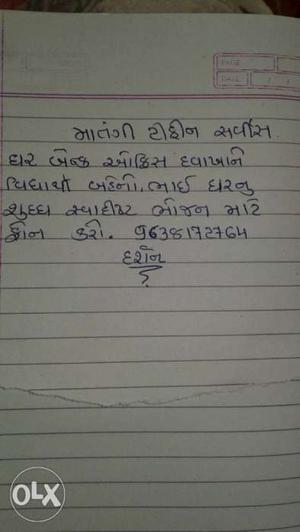 PAGE
DATE / /
માતંગી ટીફીન સર્વીસ
ઘર બેન્ક ઓફિસ દવાખાને
વિદ્યાર્થી બહેનો, ભાઈ ઘરનુ
શુધ્ધ સ્વાદીષ્ટ ભોજન માટે
ફોન કરો. 9638172764
દર્શન
OLX